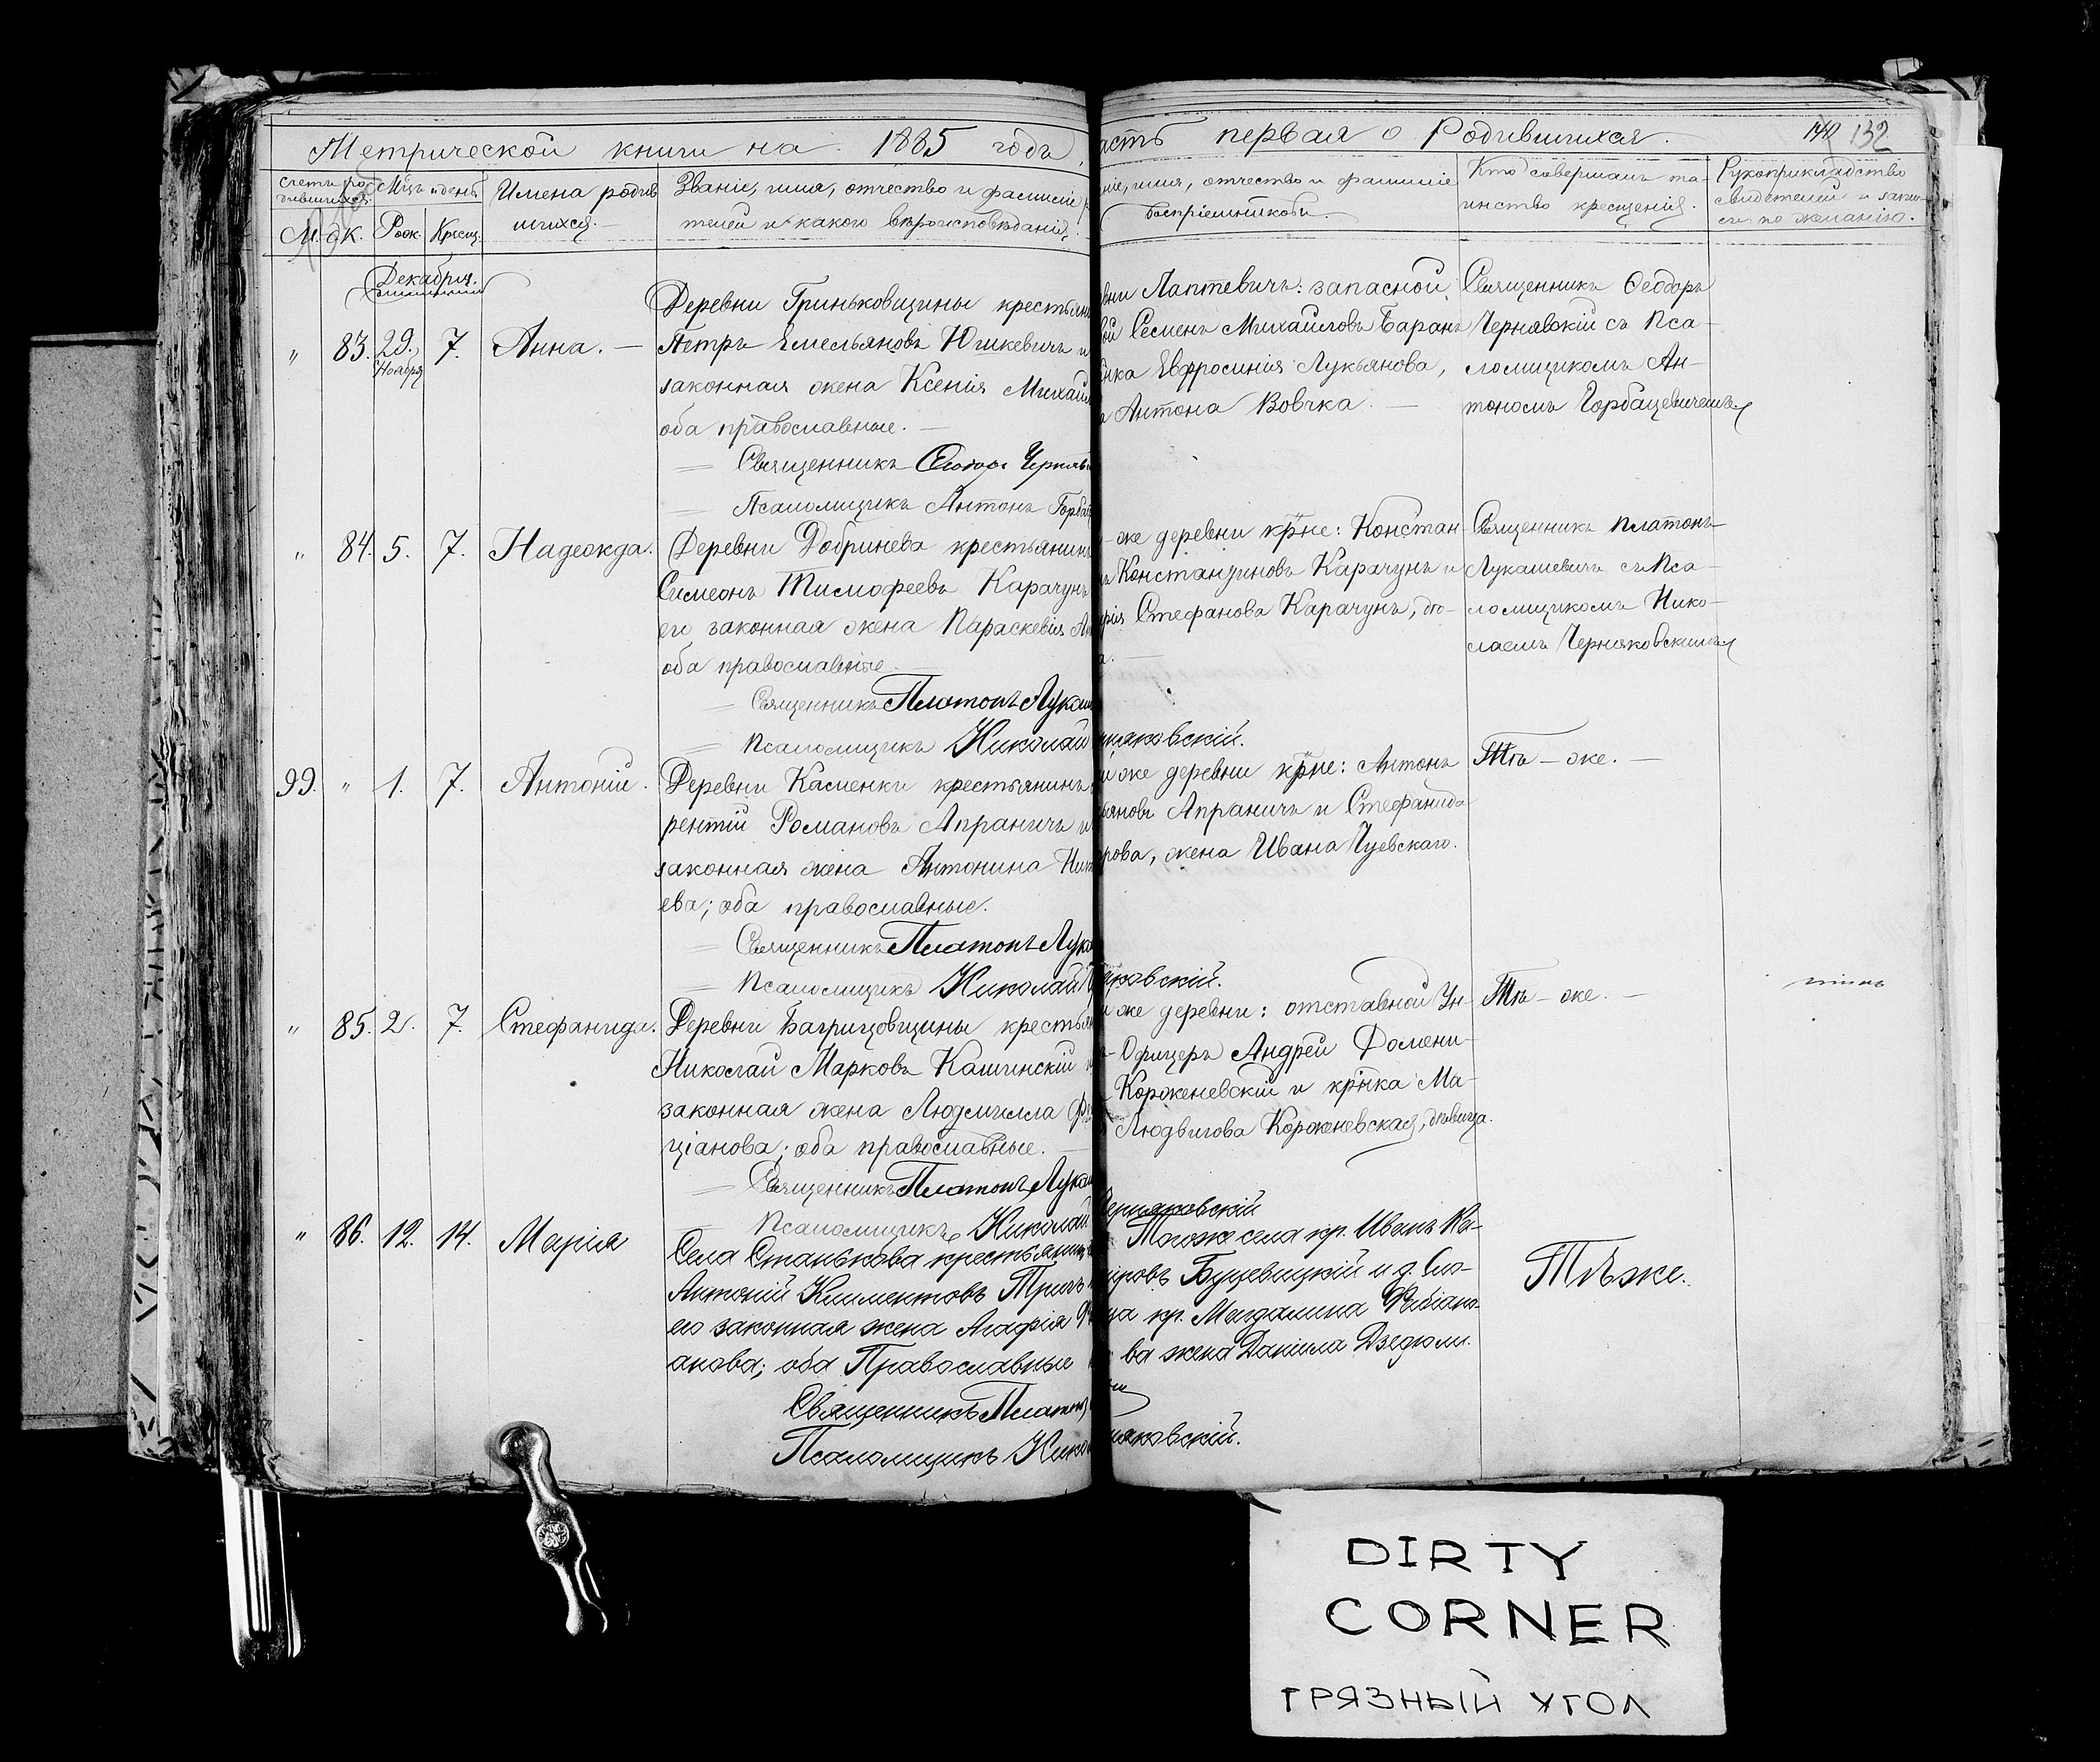 Метрической книги на 1885 годъ,
асть первая о Родившихся.
132
Счетъ ро-
дившихся.
Мцъ и день
Имена родив
шихся.
Званіе, имя, отчество и фамиліе
телей и какого вѣроисповѣданія.
М. Ж. Рож. Крещ.
ніе, имя, отчество и фамиліе
воспріемниковъ.
Кто совершалъ та-
инство крещенія.
Рукоприкладство
свидетелей о запи-
си по желанію.
Декабрь.
" 83. 29. Ноября 7. Анна. —
Деревни Гриньковщины крестьян
Петръ Емельяновъ Юшкевичъ и
законная жена Ксенія Михаил
оба православные. —
— Священникъ Ѳеодоръ Черняв
— Псаломщикъ Антонъ Горба
вни Лаптевичъ: запасной
ой Семенъ Михаиловъ Баранъ
нка Евфросинія Лукьянова,
а Антона Вовчка. —
Священникъ Ѳеодоръ
Чернявскій съ Пса-
ломщикомъ Ан-
тономъ Горбацевичемъ
" 84. 5. 7. Надежда.
Деревни Добринева крестьянинъ
Симеонъ Тимофеевъ Карачунъ
его законная жена Параскевія Ан
оба православные. —
— Священникъ Платонъ Лукаш
— Псаломщикъ Николай
-же деревни кр-не: Констан-
ъ Константиновъ Карачунъ и
рія Стефанова Карачунъ, дѣ-
а. —
няковскій.
Священникъ Платонъ
Лукашевичъ съ Пса-
ломщикомъ Нико-
лаемъ Черняковскимъ
99. " 1. 7. Антоній.
Деревни Касенки крестьянинъ
рентій Романовъ Апраничъ и
законная жена Антонина Ник
ева; оба православные.
— Священникъ Платонъ Лука
— Псаломщикъ Николай
й же деревни кр-не: Антонъ
ьяновъ Апраничъ и Стефанида
рова, жена Ивана Чуевскаго.
яковскій.
Тѣ-же. —
" 85. 2. 7. Стефанида.
Деревни Багрицовщины крестьян
Николай Марковъ Кашинскій и
законная жена Людмилла Фе
ціанова; оба православные. —
— Священникъ Платонъ Лукаш
— Псаломщикъ Николай
и же деревни: отставной Ун-
-Офицеръ Андрей Домени-
Корженевскій и кр-нка Ма-
Людвигова Корженевская, дѣвица.
Черняковскій
Тѣ-же. —
" 86. 12. 14. Марія
Села Станькова крестьянинъ
Антоній Климентовъ Тризъ
его законная жена Агафія Ф
анова; оба Православные
Священникъ Платонъ
Псаломщикъ Нико
Тогоже села кр. Иванъ Ка-
міровъ Буцевицкій и д. Сло-
ца кр. Магдалина Фабіано-
ва жена Даніила Дзедюли.
няковскій.
Тѣже.
DIRTY
CORNER
ГРЯЗНЫЙ УГОЛ